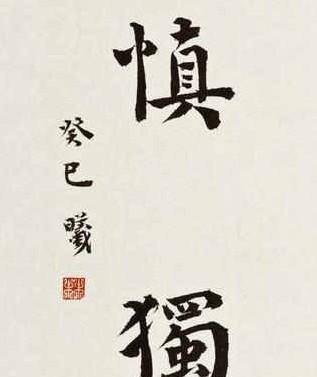 慎獨
癸巳 曦